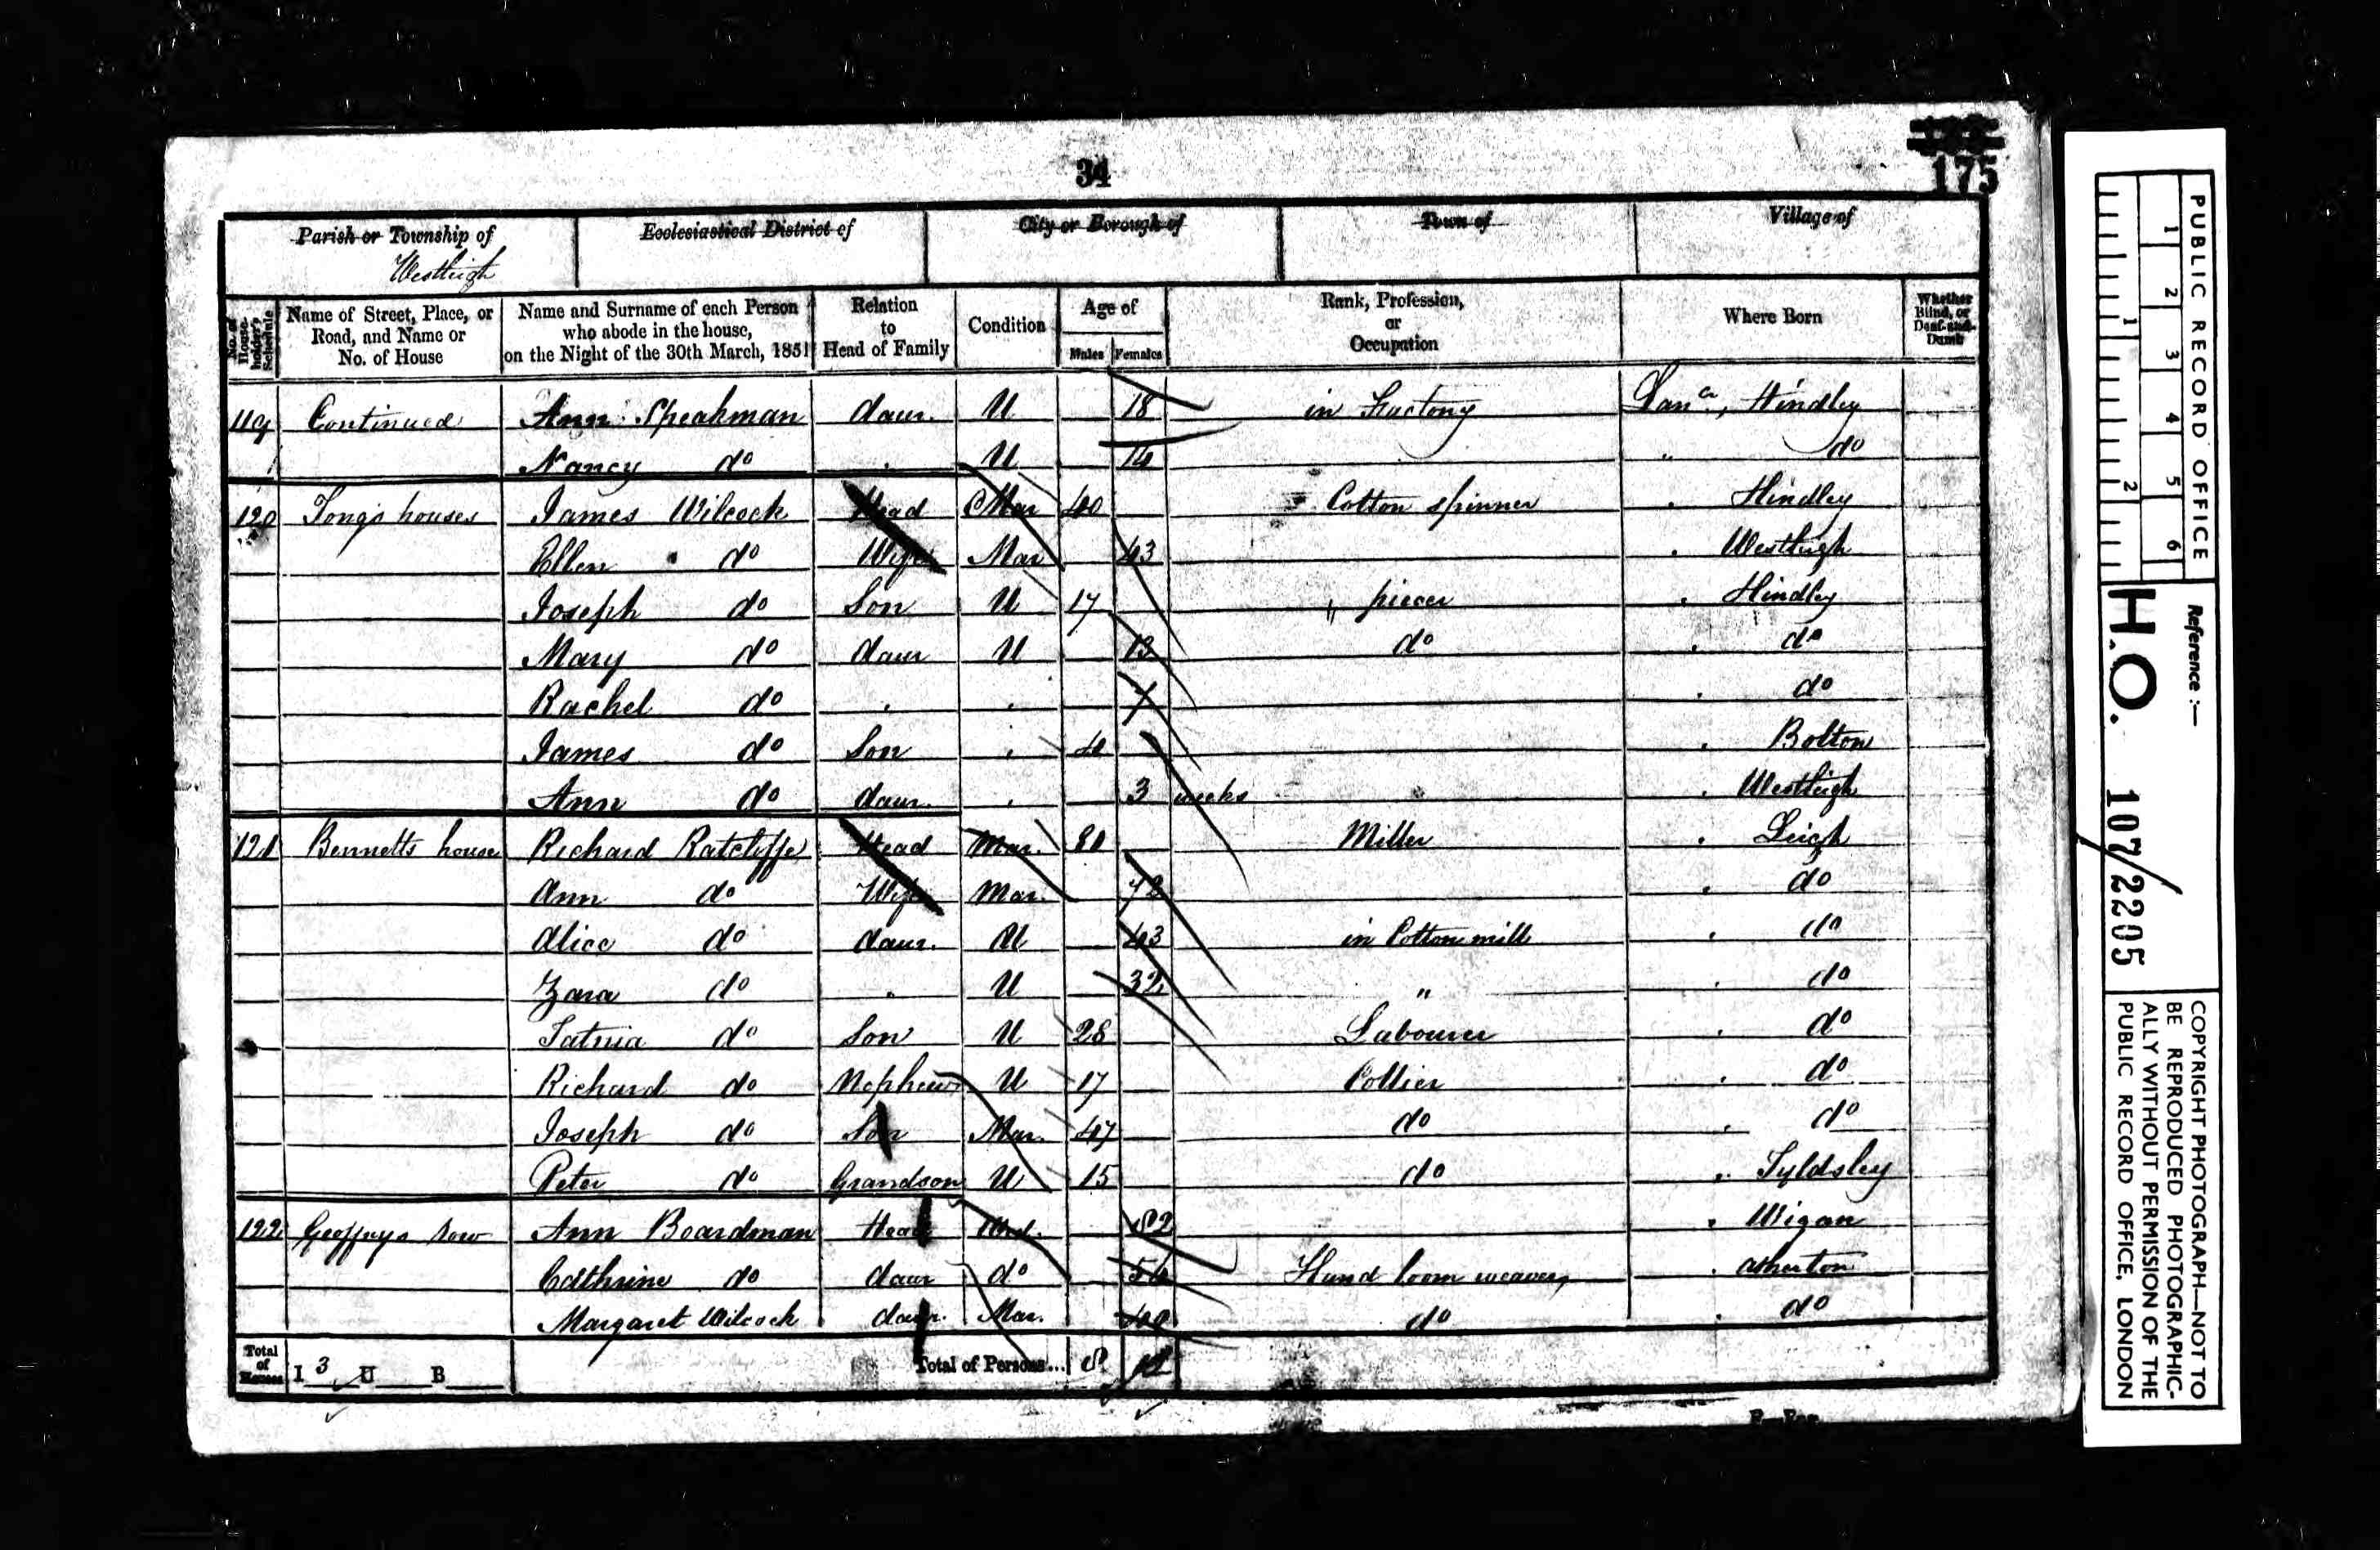 34
175
Parish or Township of Ecclesiastical District of City or Borough of Town of Village of
Westleigh
No. of House-holder's Schedule Name of Street, Place, or Road, and Name or No. of House Name and Surname of each Person who abode in the house, on the Night of the 30th March, 1851 Relation to Head of Family Condition Age of Males Females Rank, Profession, or Occupation Where Born Whether Blind, or Deaf-and-Dumb
119 Continued Ann Speakman daur. U 18 in Factory Lanc., Hindley
Nancy do . U 14 " do
120 Tongs houses James Wilcock Head Mar 40 Cotton spinner . Hindley
Ellen do Wife Mar 43 . Westleigh
Joseph do Son U 17 " piecer . Hindley
Mary do daur U 13 do . do
Rachel do . . 7 . do
James do Son . 40 . Bolton
Ann do daur. . 3 weeks . Westleigh
121 Bennetts house Richard Ratcliffe Head Mar. 80 Miller . Leigh
Ann do Wife Mar. 72 . do
Alice do daur. U 43 in Cotton mill . do
Zara do . U 32 " . do
do Son U 28 Labourer . do
Richard do Nephew U 17 Collier . do
Joseph do Son Mar. 47 do . do
Peter do Grandson U 15 do . Tyldsley
122 Geoffrys row Ann Boardman Head 82 . Wigan
Cathrine do daur do 54 Hand loom weaver . Atherton
Margaret Wilcock daur. Mar. 40 do . do
Total of Houses I 3 U B Total of Persons... 8 12
PUBLIC RECORD OFFICE
1 2 3 4 5 6
1 2
Reference :—
H.O. 107/2205
COPYRIGHT PHOTOGRAPH—NOT TO
BE REPRODUCED PHOTOGRAPHIC-
ALLY WITHOUT PERMISSION OF THE
PUBLIC RECORD OFFICE, LONDON